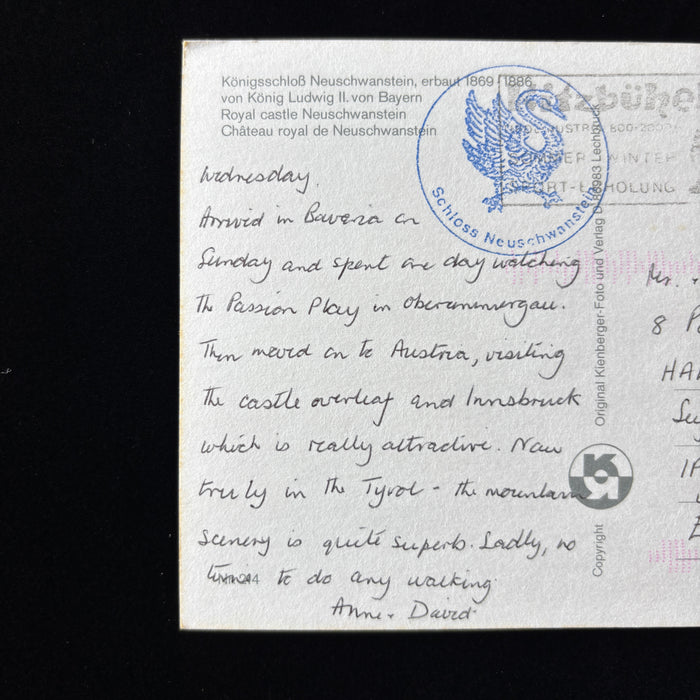 Königsschloß Neuschwanstein, erbaut 1869-1886
von König Ludwig II. von Bayern
Royal castle Neuschwanstein
Château royal de Neuschwanstein
Schloss Neuschwanstein
Kitzbühel
SOMMER - WINTER
SPORT-ERHOLUNG
Wednesday.
Arrived in Bavaria on
Sunday and spent one day watching
the Passion Play in Oberammergau.
Then moved on to Austria, visiting
the castle overleaf and Innsbruck
which is really attractive. Now
truly in the Tyrol - the mountain
scenery is quite superb. Sadly, no
time to do any walking.
Anne + David.
Original Kienberger-Foto und Verlag D-86983 Lechbruck
Copyright
8
HAR